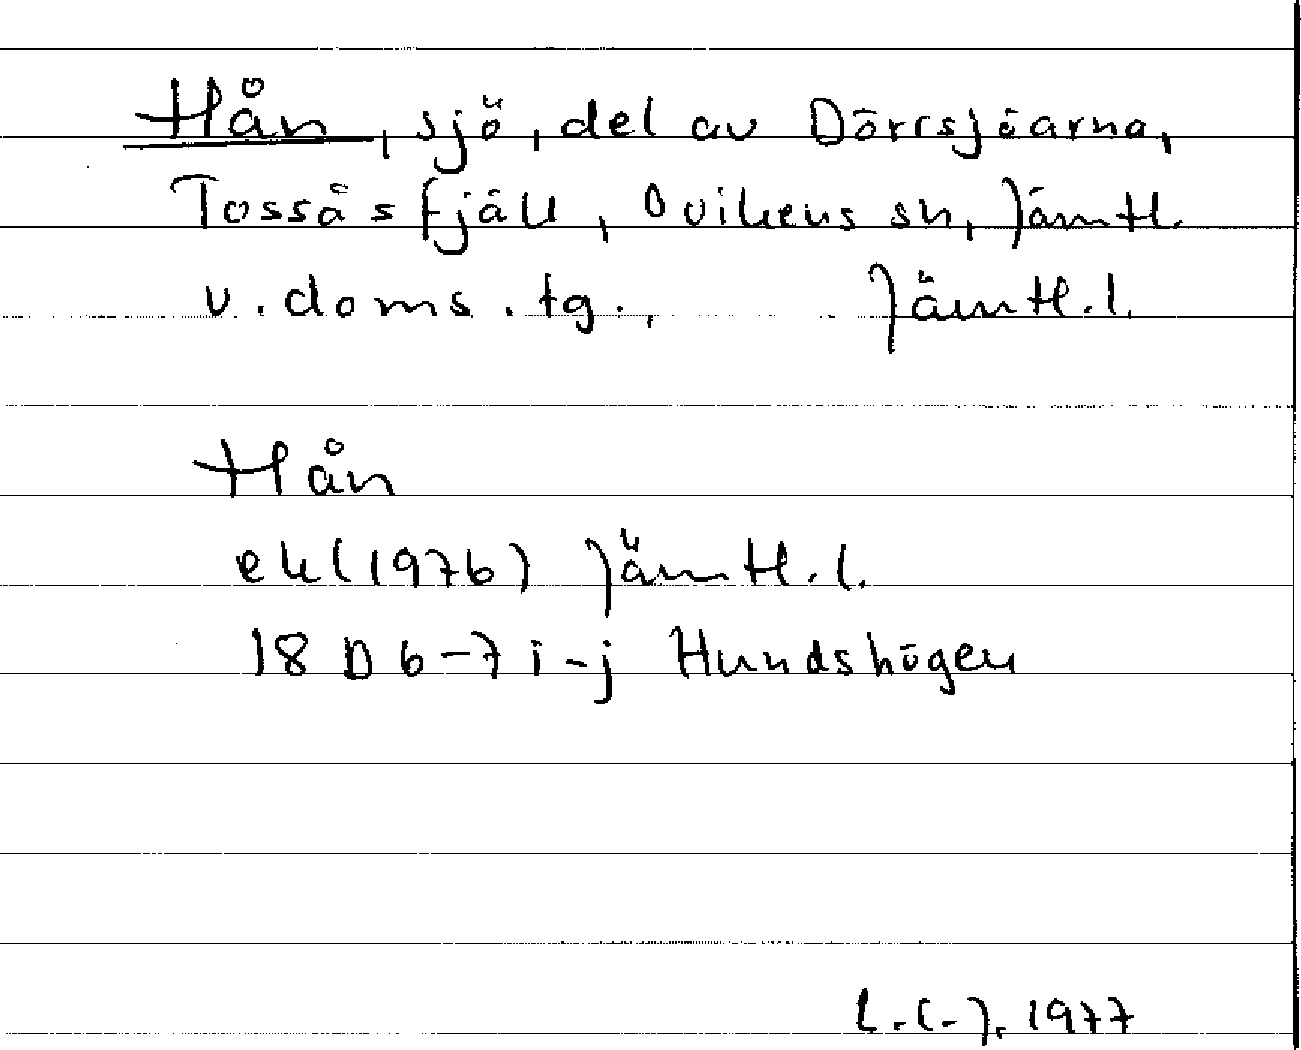 Hån, sjö, del av Dörrsjöarna,
Tossåsfjäll, Ovikens sn, Jämtl.
v. doms. tg., Jämtl. l.
Hån
ek (1976) Jämtl. l.
18 D 6-7 i-j Hundshögen
L.(-). 1977